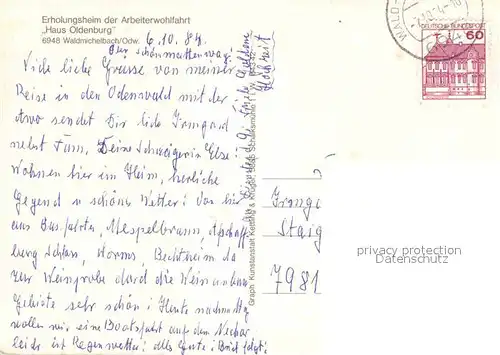 Erholungsheim der Arbeiterwohlfahrt
„Haus Oldenburg"
6948 Waldmichelbach/Odw.
6.10.84.
Viele liebe Grüsse von meiner
Reise in den Odenwald mit der
Awo sendet Dir liebe Irmgard
nebst Fam. Deine Schwägerin Else!
Wohnen hier im Heim, herrliche
Gegend u schöne Wetter! Von hier
aus Busfahrten, Mespelbrunn, Aschaffen
berg Schloss, Worms, Bechtheim da
zur Weinprobe durch die Weinanbau
Gebiete sehr schön! Heute nachmittg
wollen wir eine Bootsfahrt auf dem Neckar
leider ist Regenwetter! alles Gute! Brief folgt!
Goldene
Hochzeit
Graph. Kunstanstalt Kiesling &
DEUTSCHE BUNDESPOST
60
WALD-
Staig
7981
privacy protection
AnsichtskartenCenter